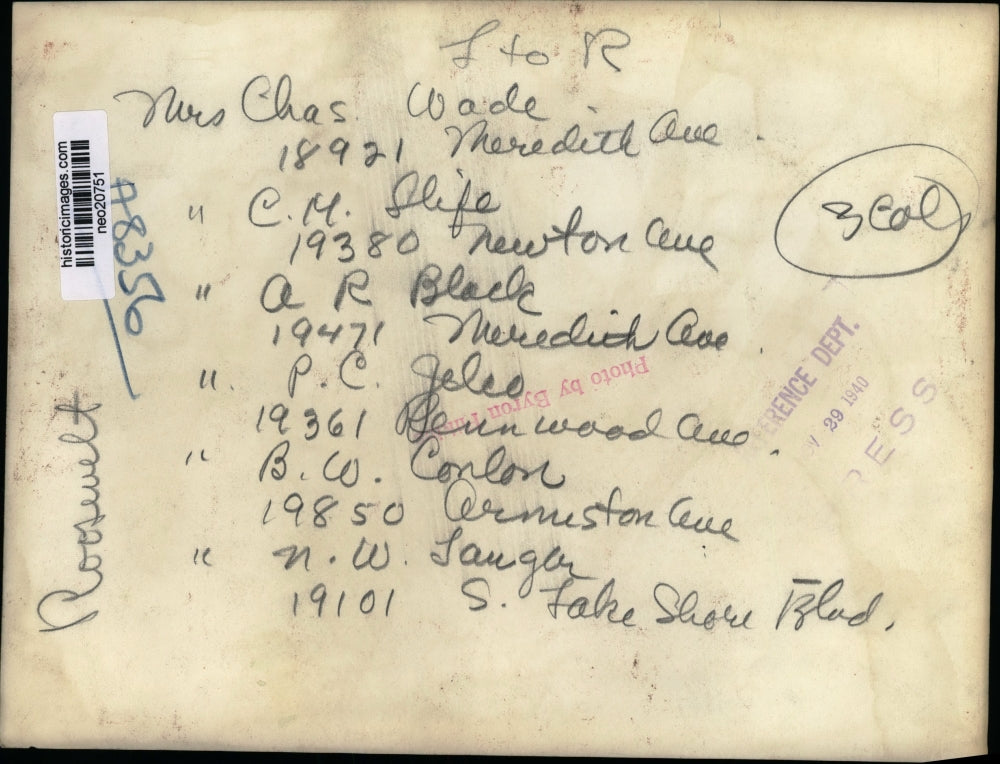 L to R
Mrs Chas. Wade
18921 Meredith Ave.
" C. H. Slife
19380 Newton Ave
" A R Black
19471 Meredith Ave.
". P. C. Jeleo
19361 Pennwood Ave.
" B. W. Conlon
19850 Arrowston Ave
" N. W. Langer
19101 S. Lake Shore Blvd.
3 Col
Roosevelt
A8356
historicimages.com
neo20751
Photo by Byron
ERENCE DEPT.
29 1940
RESS